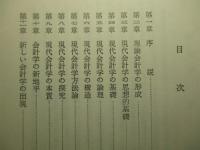 目次
第一章 序説
第二章 理論会計学の形成
第三章 現代会計学の思想的基礎
第四章 現代会計学の基礎
第五章 現代会計学の論理
第六章 現代会計学の構造
第七章 現代会計学方法論
第八章 現代会計学の探究
第九章 現代会計学の本質
第十章 会計学の新地平
第二章 新しい会計学の出現